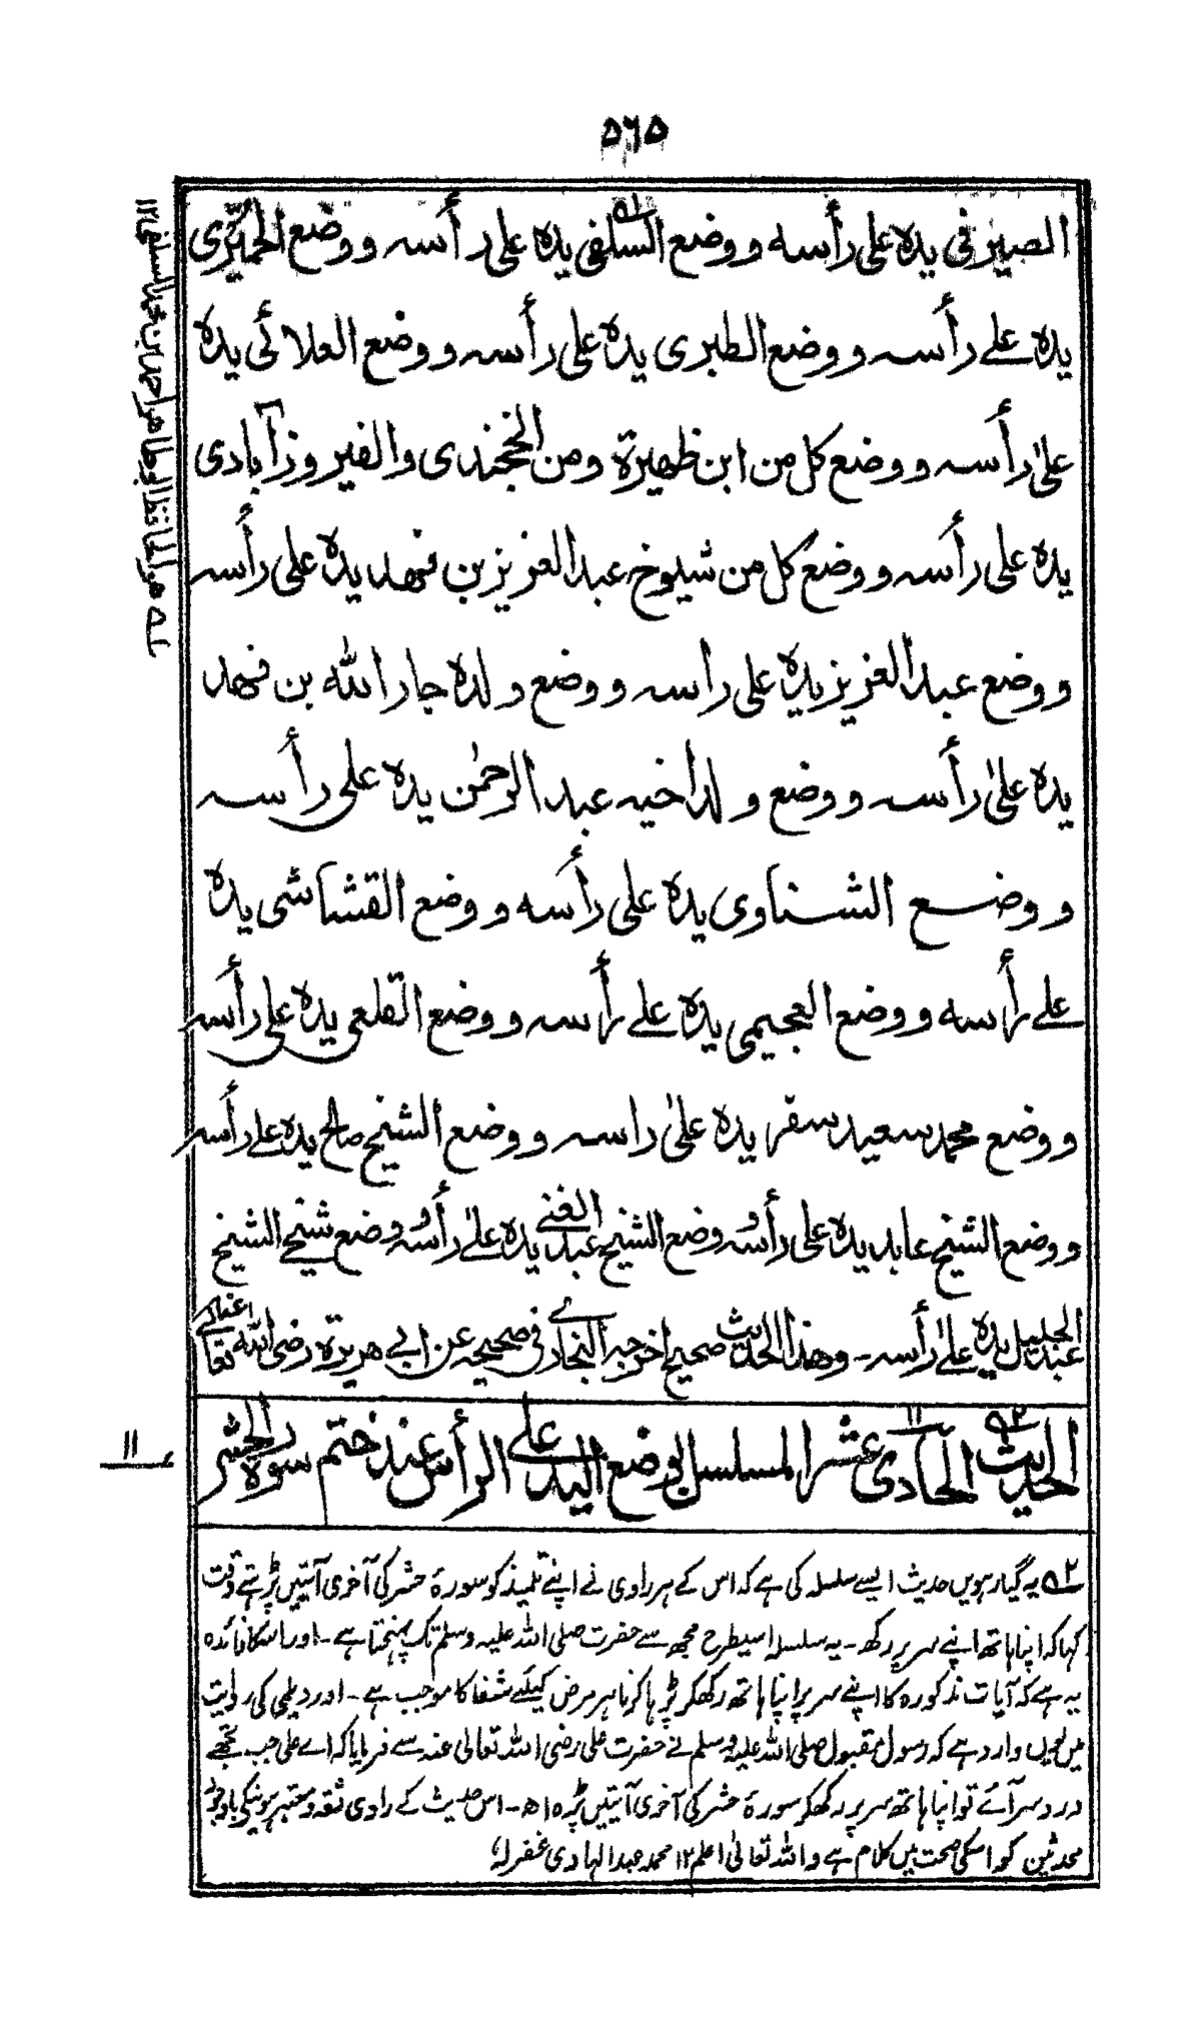 ٥٦٥
الصيرفى يده على رأسه ووضع السلفى يده على رأسه ووضع الحميّرى
يده علے رأسه ووضع الطبرى يده على رأسه ووضع العلائى يده
علىٰ رأسه ووضع كل من ابن ظهيرة ومن الخجندى والفيروزآبادى
يده على رأسه ووضع كل من شيوخ عبد العزيز بن فهد يده على رأسه
ووضع عبد العزيز يده على راسه ووضع ولده جار الله بن فهد
يده علىٰ رأسه ووضع ولد اخيه عبد الرحمٰن يده على رأسه
ووضع الشناوى يده على رأسه ووضع القشاشى يده
علے رأسه ووضع العجيمى يده علے رأسه ووضع القلعى يده على رأسه
ووضع محمد سعيد سفر يده علىٰ راسه ووضع الشيخ صالح يده علے رأسه
ووضع الشيخ عابد يده على رأسه ووضع الشيخ عبد الغنے يده علےٰ رأسه ووضع شيخے الشيخ
عبد الجليل يده علےٰ رأسه۔ وهذا الحديث صحيح اخرجه البخارے فى صحيحه عن ابى هريرة رضى الله تعالى
الحديث الحادى عشر المسلسل بوضع اليد على الرأس عند ختم سورة الحشر
١١
٢ یہ گیارہویں حدیث ایسے سلسلہ کی ہے کہ اس کے ہر راوی نے اپنے تلمیذ کو سورۂ حشر کی آخری آیتیں پڑہتے وقت
کہا کہ اپنا ہاتھ اپنے سر پر رکھ۔ یہ سلسلہ اسیطرح مجھ سے حضرت صلی اللہ علیہ وسلم تک پہنچتا ہے۔ اور اسکا فائدہ
یہ ہے کہ آیات مذکورہ کا اپنے سر پر اپنا ہاتھ رکھکر پڑہا کرنا ہر مرض کیلئے شفا کا موجب ہے۔ اور دیلمی کی روایت
میں یوں وارد ہے کہ رسول مقبول صلی اللہ علیہ وسلم نے حضرت علی رضی اللہ تعالی عنہ سے فرمایا کہ اے علی جب تجھے
درد سر آئے تو اپنا ہاتھ سر پر رکھکر سورۂ حشر کی آخری آیتیں پڑہ اھ۔ اس حدیث کے راوی ثقہ و معتبر ہونیکے باوجود
محدثین کو اسکی صحت میں کلام ہے واللہ تعالیٰ اعلم ١٢ محمد عبد الہادی غفر لہ
١ھ هو الحافظ ابو طاهر احمد بن محمد السلفى ١٢